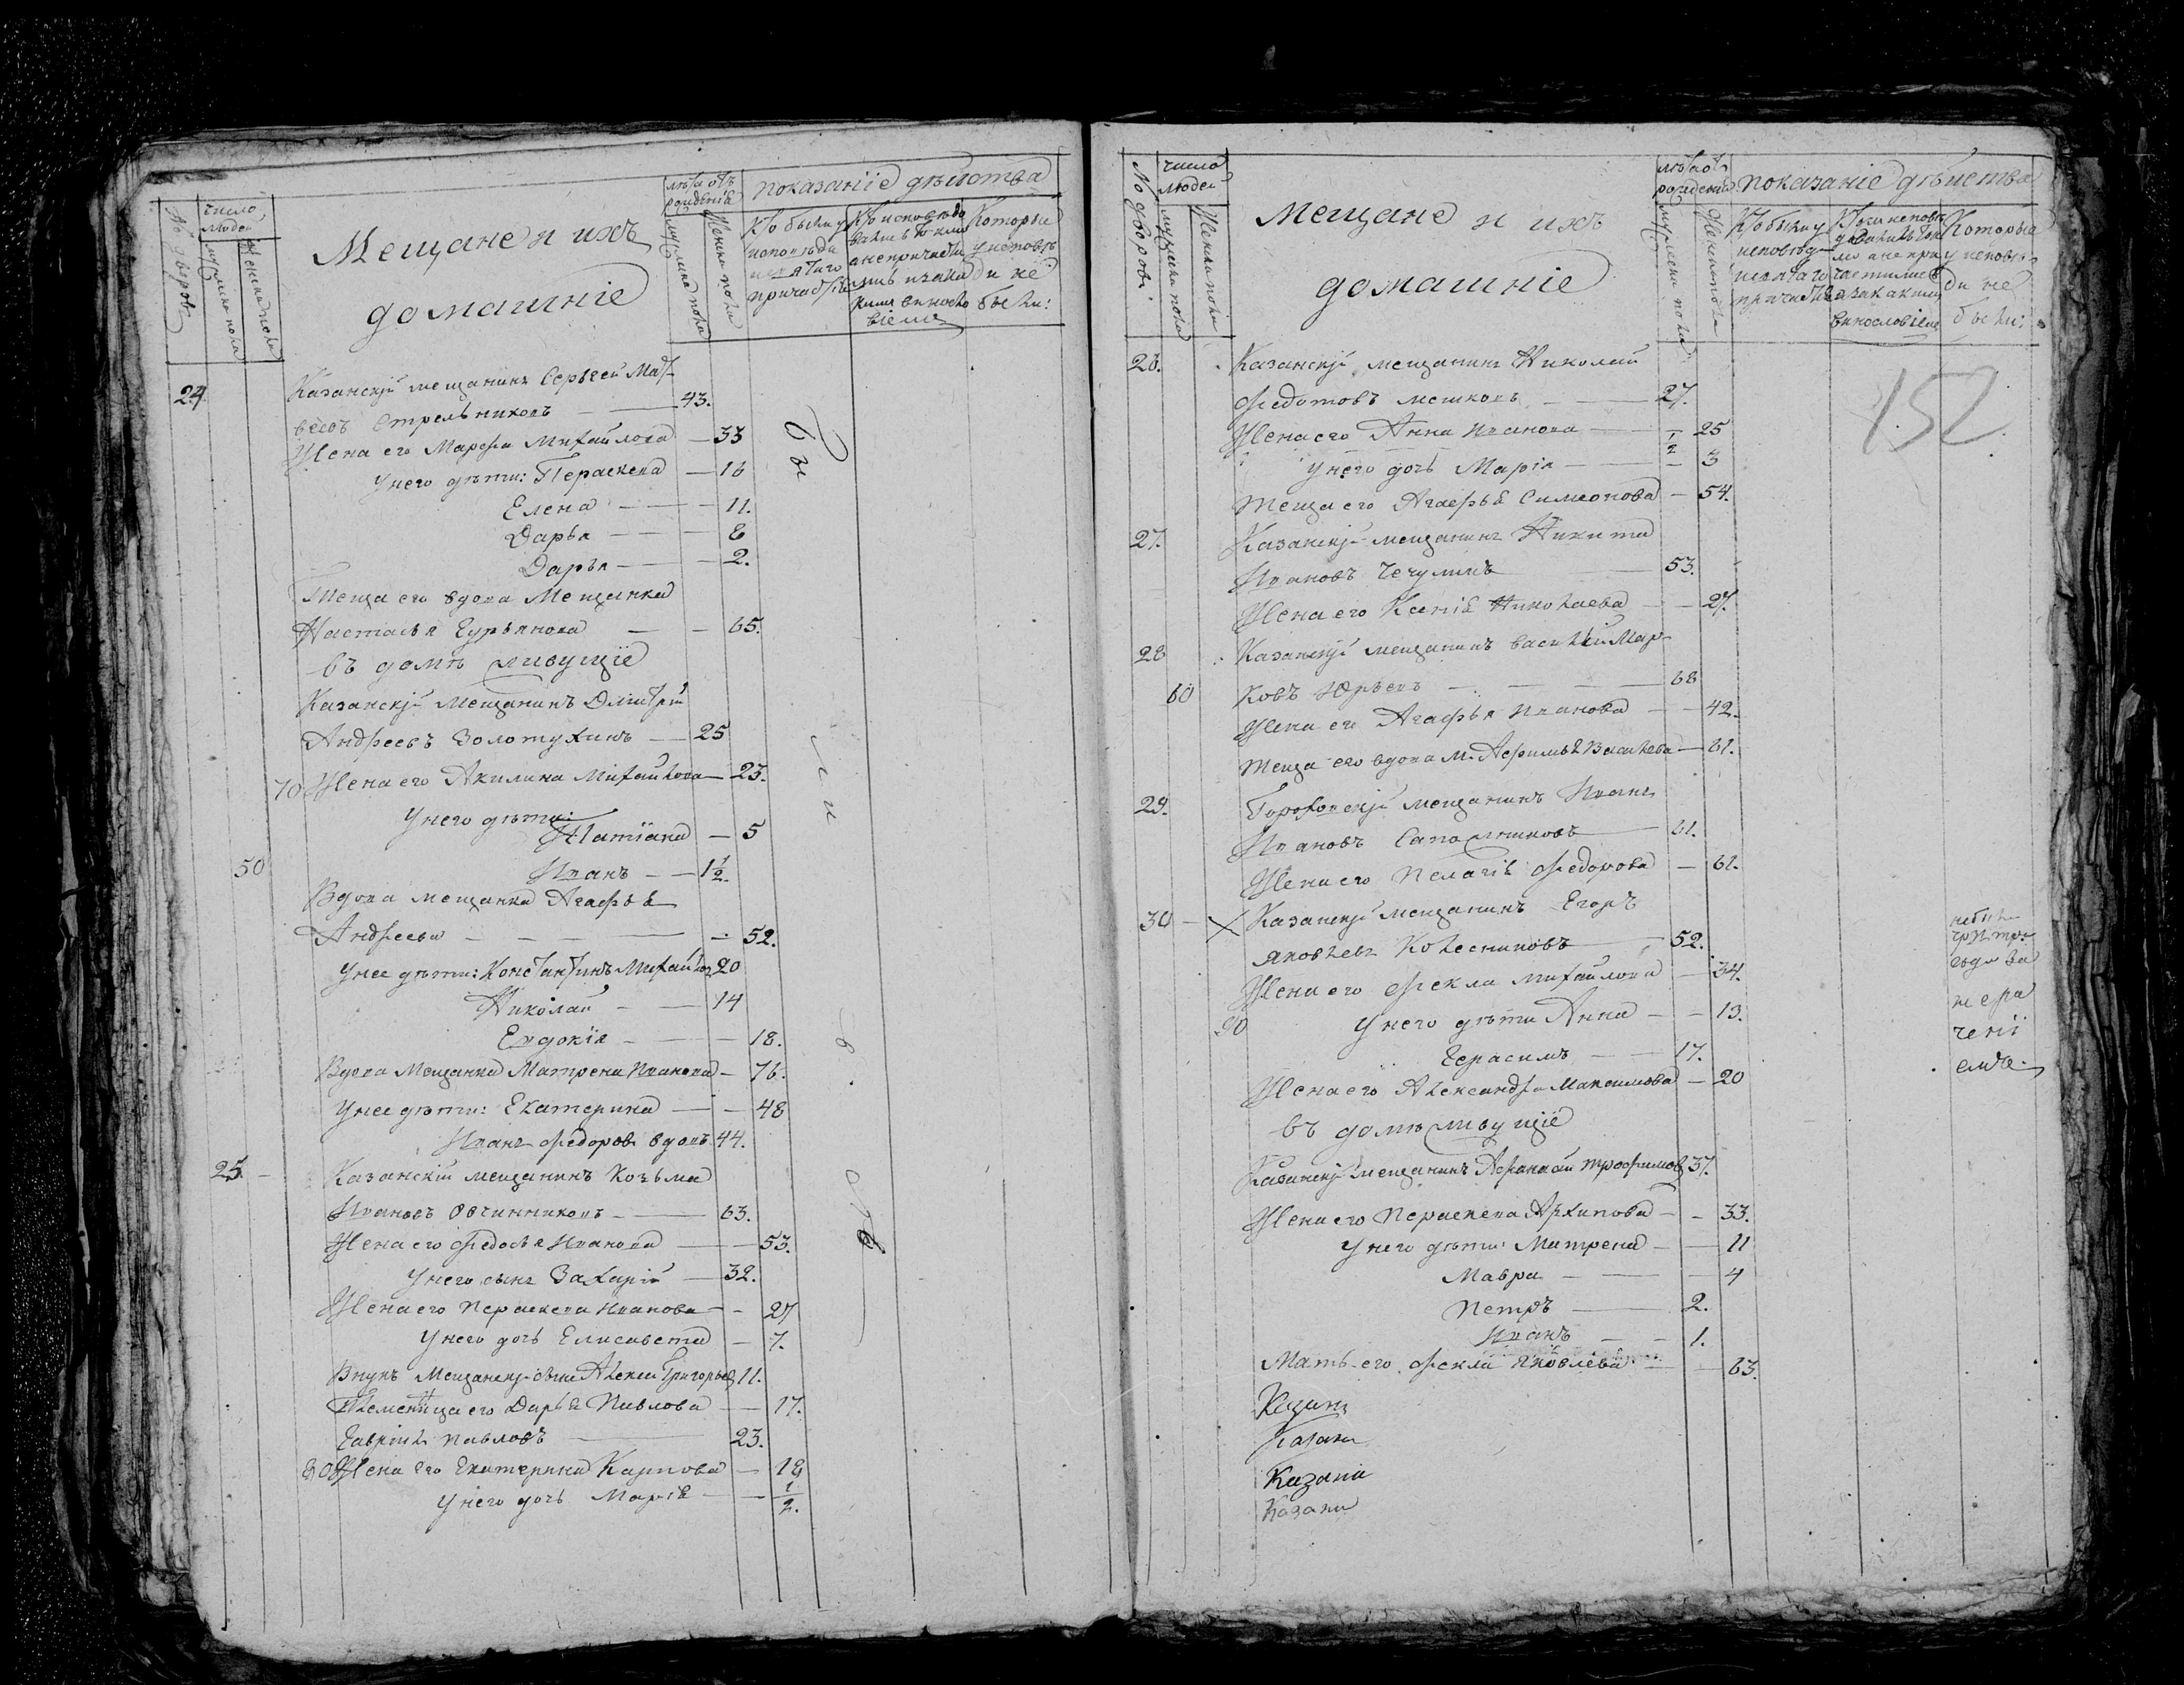 № дворовъ
число людей
мужска пола
женска пола
Мещане и ихъ
домашніе
лѣта отъ рожденія
мужска пола
женска пола
показаніе дѣйства
Кто были у исповѣди и святаго причастія
Кто исповѣдались токмо а не причастились и за каким винословіем
Которые у исповѣди не были:
24 Казанскій мещанинъ Сергей Мат-
веевъ Стрельниковъ — 43.
Жена его Марфа Михайлова — 33
У него дѣти: Параскева — 16
Елена — 11.
Дарья — 8
Дарья — 2.
Теща его вдова Мещанка
Настасья Гурьянова — 65.
въ домѣ живущіе
Казанскій Мещанинъ Дмитрій
Андреевъ Золотухинъ — 25
70 Жена его Акилина Михайлова — 23.
У него дѣти:
Татіана — 5
50 Иванъ — 1½.
Вдова мещанка Агафья
Андреева — 52.
У нее дѣти: Константинъ Михайлов 20
Николай — 14
Евдокія — 18.
Вдова Мещанка Матрена Иванова — 76.
У нее дѣти: Екатерина — 48
Иванъ Федоровъ вдовъ 44.
25. Казанскій мещанинъ Козьма
Ивановъ Овчинниковъ — 63.
Жена его Федосья Иванова — 53.
У него сынъ Захарій — 32.
Жена его Параскева Иванова — 27
У него дочь Елисавета — 7.
Внукъ Мещанскій сынъ Алексей Григорьев 11.
Племянница его Дарья Павлова — 17.
Гавріилъ Павловъ — 23.
80 Жена его Екатерина Карпова — 18
У него дочь Марія — ½.
Были
у
№ дворовъ.
число людей
мужска пола
Женска пола
Мещане и ихъ
домашніе
лѣта от рожденія
мужска пола
Женска пола
показаніе дѣйства
Кто были у исповѣди и святаго причастія
Кто исповѣдовались токмо а не причастились и за каким винословіем
Которые у исповѣди не были:
152
26. Казанскій мещанинъ Николай
Федотовъ Мешковъ — 27.
Жена его Анна Иванова — 25
½
У него дочь Марія — 3
Теща его Агафья Симеонова — 54.
27. Казанскій мещанинъ Никита
Ивановъ Чечулинъ 53.
Жена его Ксенія Николаева — 27.
28 Казанскій мещанинъ Василій Мар-
60 ковъ Юрьевъ — 68
Жена его Агафья Иванова — 42.
Теща его вдова М. Афимья Васильева — 61.
29. Гороховскій мещанинъ Иванъ
Ивановъ Сапожниковъ — 61.
Жена его Пелагія Федорова — 61.
30 Казанскій мещанинъ Егоръ
Яковлевъ Колесниковъ — 52.
Жена его Фекла Михайлова — 34.
90 У него дѣти Анна — 13.
Герасимъ — 17.
Жена его Александра Максимова — 20
въ домѣ живущіе
Казанскій мещанинъ Афанасій Трофимовъ 37.
Жена его Параскева Архипова — 33.
У него дѣти: Матрена — 11
Мавра — 4
Петръ — 2.
Иванъ — 1.
Мать его Фекла Яковлева — 63.
Казани
Казани
Казани